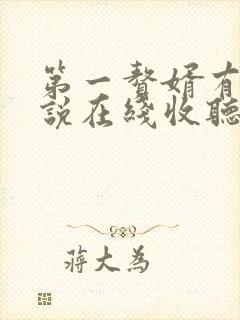 第一贅婿有
說在綫收聽
蔣大為